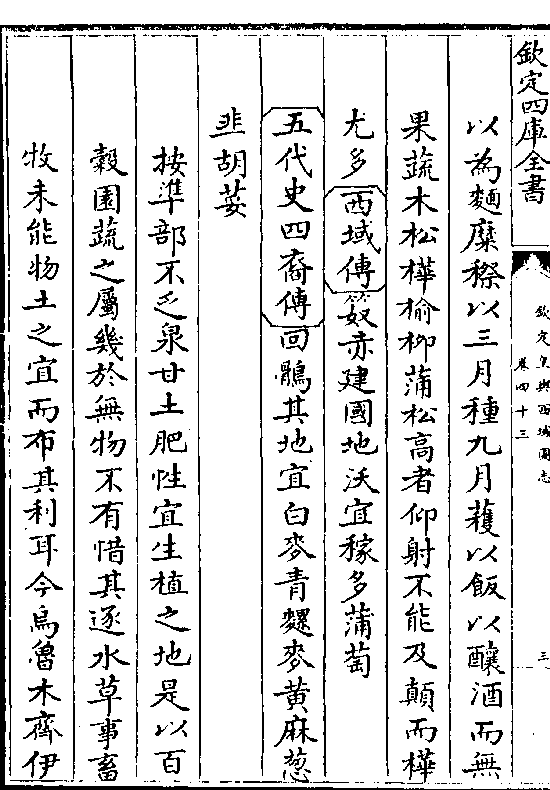 欽定四庫全書
欽定皇輿西域圖志
卷四十三
三
以為麵糜穄以三月種九月穫以飯以釀酒而無
果蔬木松樺榆柳蒲松高者仰射不能及顛而樺
尤多西域傳笯赤建國地沃宜稼多蒲萄
五代史四裔傳回鶻其地宜白麥青麰麥黃麻葱
韭胡荽
按準部不乏泉甘土肥性宜生植之地是以百
穀園蔬之屬幾於無物不有惜其逐水草事畜
牧未能物土之宜而布其利耳今烏魯木齊伊